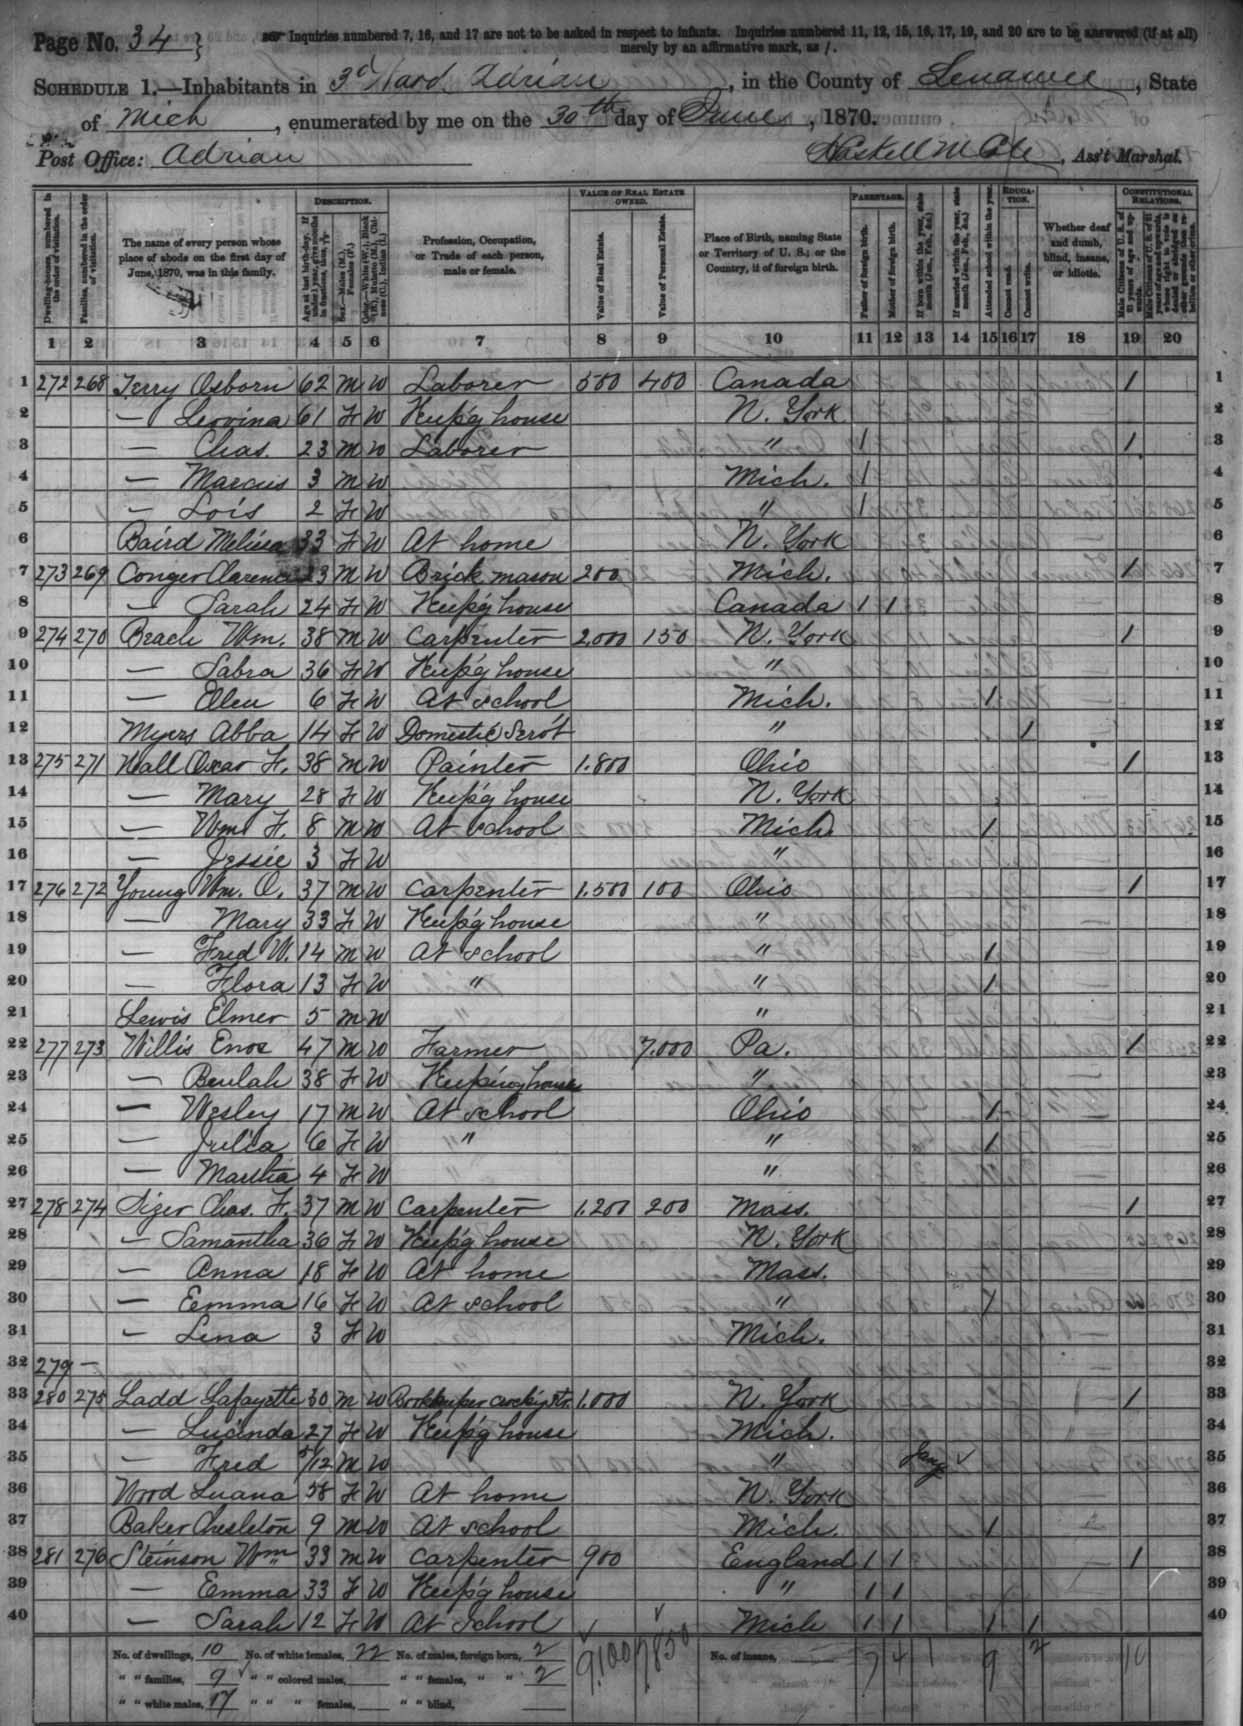 Page No. 34
Inquiries numbered 7, 16, and 17 are not to be asked in respect to infants. Inquiries numbered 11, 12, 15, 16, 17, 19, and 20 are to be answered (if at all)
merely by an affirmative mark, as /.
SCHEDULE 1.—Inhabitants in 3d Ward Adrian, in the County of Lenawee, State
of Mich, enumerated by me on the 30th day of June, 1870.
Post Office: Adrian
Haskell M Cole, Ass't Marshal.
Dwelling-houses, numbered in the order of visitation.
Families, numbered in the order of visitation.
The name of every person whose place of abode on the first day of June, 1870, was in this family.
DESCRIPTION.
Age at last birth-day. If under 1 year, give months in fractions, thus, 3/12
Sex.—Males (M.), Females (F.)
Color.—White (W.), Black (B.), Mulatto (M.), Chinese (C.), Indian (I.)
Profession, Occupation, or Trade of each person, male or female.
VALUE OF REAL ESTATE OWNED.
Value of Real Estate.
Value of Personal Estate.
Place of Birth, naming State or Territory of U. S.; or the Country, if of foreign birth.
PARENTAGE.
Father of foreign birth.
Mother of foreign birth.
If born within the year, state month (Jan., Feb., &c.)
If married within the year, state month (Jan., Feb., &c.)
Attended school within the year.
EDUCATION.
Cannot read.
Cannot write.
Whether deaf and dumb, blind, insane, or idiotic.
CONSTITUTIONAL RELATIONS.
Male Citizens of U. S. of 21 years of age and upwards.
1 2 3 4 5 6 7 8 9 10 11 12 13 14 15 16 17 18 19 20
1 272 268 Terry Osborn 62 M W Laborer 500 400 Canada 1 1
2 — Lovina 61 F W Keep'g house N. York 2
3 — Chas. 23 M W Laborer " 1 1 3
4 — Marcus 3 M W Mich. 1 4
5 — Lois 2 F W " 1 5
6 Baird Melissa 33 F W At home N. York 6
7 273 269 Conger Clarence 23 M W Brick mason 200 Mich. 1 7
8 — Sarah 24 F W Keep'g house Canada 1 1 8
9 274 270 Beach Wm. 38 M W Carpenter 2,000 150 N. York 1 9
10 — Sabra 36 F W Keep'g house " 10
11 — Ellen 6 F W At school Mich. 1 11
12 Myers Abba 14 F W Domestic Serv't " 1 12
13 275 271 Wall Oscar F. 38 M W Painter 1.800 Ohio 1 13
14 — Mary 28 F W Keep'g house N. York 14
15 — Wm F. 8 M W At school Mich. 1 15
16 — Jessie 3 F W " 16
17 276 272 Young Wm. O. 37 M W Carpenter 1.500 100 Ohio 1 17
18 — Mary 33 F W Keep'g house " 18
19 — Fred W. 14 M W At school " 1 19
20 — Flora 13 F W " " 1 20
21 Lewis Elmer 5 M W " 21
22 277 273 Willis Enos 47 M W Farmer 7.000 Pa. 1 22
23 — Beulah 38 F W Keeping house " 23
24 — Wesley 17 M W At school Ohio 1 24
25 — Julia 6 F W " " 1 25
26 — Martha 4 F W " 26
27 278 274 Sizer Chas. F. 37 M W Carpenter 1.200 200 Mass. 1 27
28 — Samantha 36 F W Keep'g house N. York 28
29 — Anna 18 F W At home Mass. 29
30 — Emma 16 F W At school " 1 30
31 — Lena 3 F W Mich. 31
32 279 — 32
33 280 275 Ladd Lafayette 30 M W Bookkeeper crock'y Str. 1.000 N. York 1 33
34 — Lucinda 27 F W Keep'g house Mich. 34
35 — Fred 5/12 M W " Jany 35
36 Wood Luana 58 F W At home N. York 36
37 Baker Chesleton 9 M W At school Mich. 1 37
38 281 276 Steinson Wm 33 M W Carpenter 900 England 1 1 1 38
39 — Emma 33 F W Keep'g house " 1 1 39
40 — Sarah 12 F W At School Mich 1 1 1 1 40
No. of dwellings, 10 No. of white females, 22 No. of males, foreign born, 2 9,100 7,850 No. of insane, 7 4 1 9 2 10
" " families, 9 " " colored males, " " females, " " 2
" " white males, 17 " " " females, " " blind,